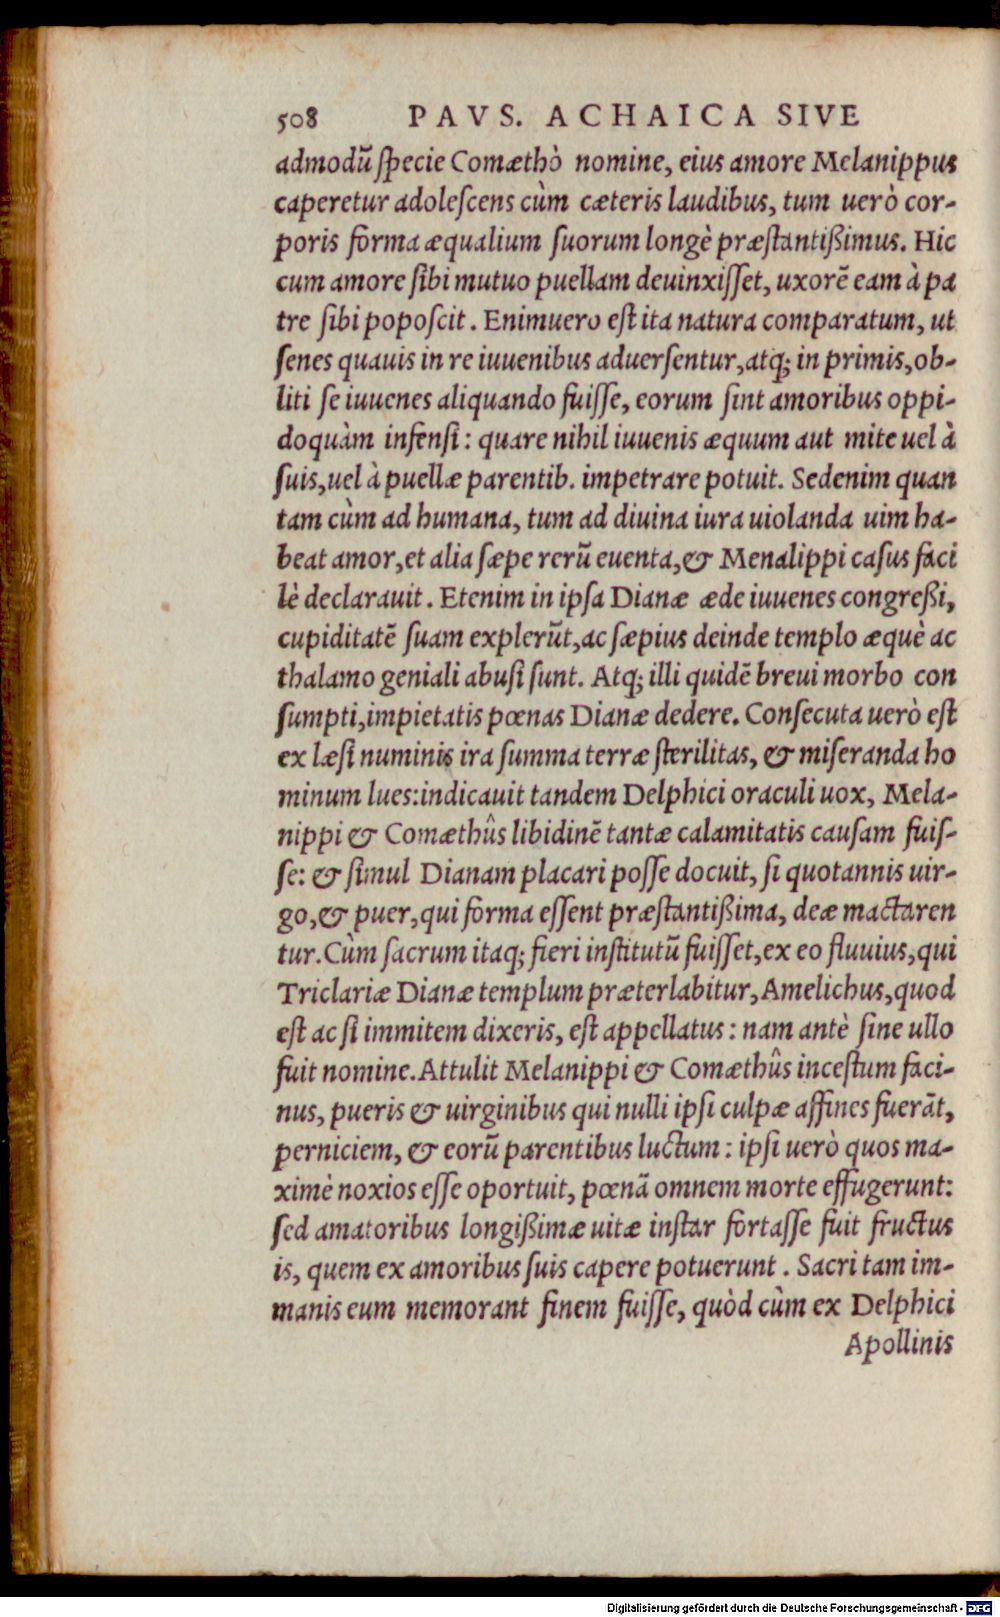 508 PAVS. ACHAICA SIVE
admodũ ſpecie Comæthò nomine, eius amore Melanippus
caperetur adoleſcens cùm cæteris laudibus, tum uerò cor-
poris forma æqualium ſuorum longè præſtantißimus. Hic
cum amore ſibi mutuo puellam deuinxiſſet, uxorē eam à pa
tre ſibi popoſcit. Enimuero eſt ita natura comparatum, ut
ſenes quauis in re iuuenibus aduerſentur, atq; in primis, ob-
liti ſe iuuenes aliquando fuiſſe, eorum ſint amoribus oppi-
doquàm infenſi: quare nihil iuuenis æquum aut mite uel à
ſuis, uel à puellæ parentib. impetrare potuit. Sedenim quan
tam cùm ad humana, tum ad diuina iura uiolanda uim ha-
beat amor, et alia ſæpe rerũ euenta, & Menalippi caſus faci
lè declarauit. Etenim in ipſa Dianæ æde iuuenes congreßi,
cupiditatē ſuam explerũt, ac ſæpius deinde templo æquè ac
thalamo geniali abuſi ſunt. Atq; illi quidē breui morbo con
ſumpti, impietatis pœnas Dianæ dedere. Conſecuta uerò eſt
ex læſi numinis ira ſumma terræ ſterilitas, & miſeranda ho
minum lues: indicauit tandem Delphici oraculi uox, Mela-
nippi & Comæthûs libidinē tantæ calamitatis cauſam fuiſ-
ſe: & ſimul Dianam placari poſſe docuit, ſi quotannis uir-
go, & puer, qui forma eſſent præſtantißima, deæ mactaren
tur. Cùm ſacrum itaq; fieri inſtitutũ fuiſſet, ex eo fluuius, qui
Triclariæ Dianæ templum præterlabitur, Amelichus, quod
eſt ac ſi immitem dixeris, eſt appellatus: nam antè ſine ullo
fuit nomine. Attulit Melanippi & Comæthûs inceſtum faci-
nus, pueris & uirginibus qui nulli ipſi culpæ affines fuerãt,
perniciem, & eorũ parentibus luctum: ipſi uerò quos ma-
ximè noxios eſſe oportuit, pœnã omnem morte effugerunt:
ſed amatoribus longißimæ uitæ inſtar fortaſſe fuit fructus
is, quem ex amoribus ſuis capere potuerunt. Sacri tam im-
manis eum memorant finem fuiſſe, quòd cùm ex Delphici
Apollinis
Digitalisierung gefördert durch die Deutsche Forschungsgemeinschaft - DFG